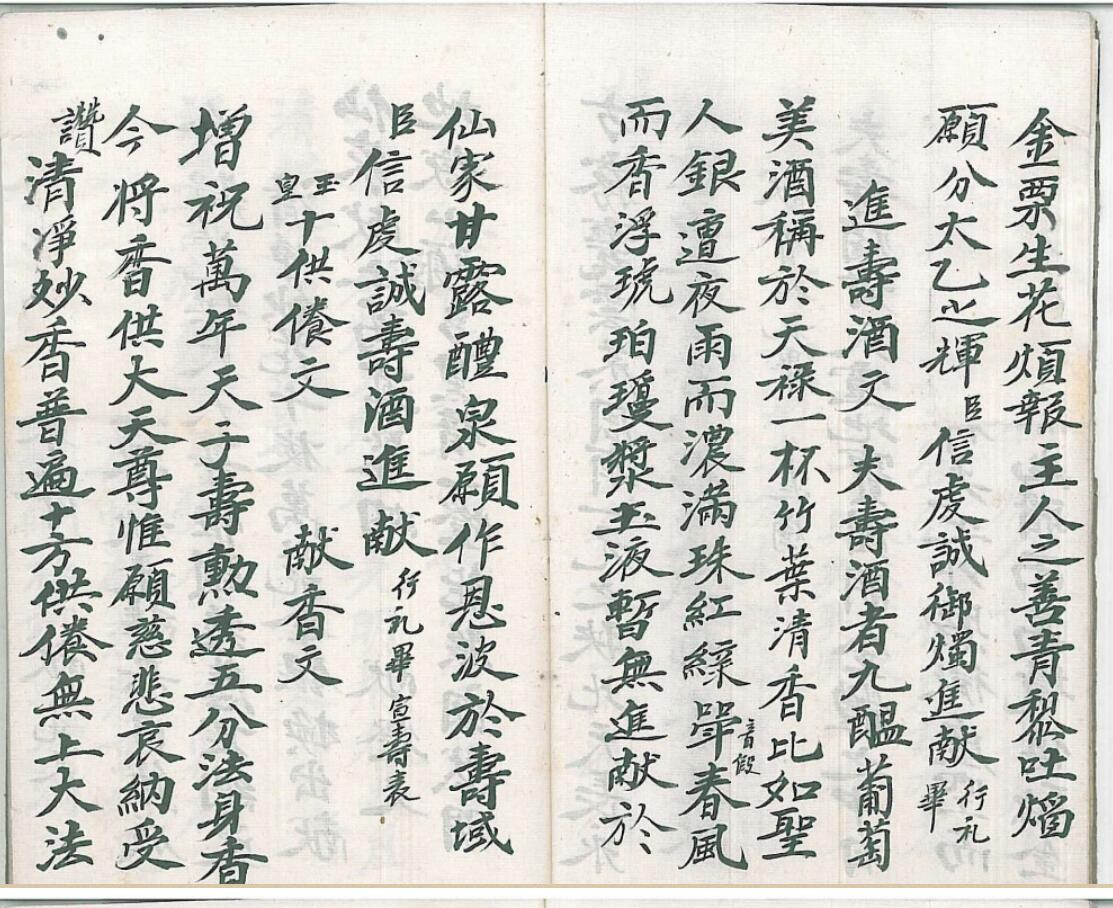 金粟生花煩報主人之善青藜吐熖
願分太乙之輝臣信虔誠御燭進献行礼畢
進壽酒文　夫壽酒者九醖葡萄
美酒稱於天祿一杯竹葉清香比如聖
人銀遭夜雨而濃滿珠紅綠斝音假春風
而香浮琥珀瓊漿玉液暫無進献於
仙家甘露醴泉願作恩波於壽域
臣信虔誠壽酒進献行礼畢宣壽表
玉皇十供養文　献香文
增祝萬年天子壽勳透五分法身香
今將香供大天尊惟願慈悲哀納受
讚清淨妙香普遍十方供養無上大法